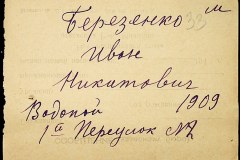 Березенко м
Иван
Никитович
Водопой 1909
1й Переулок №2